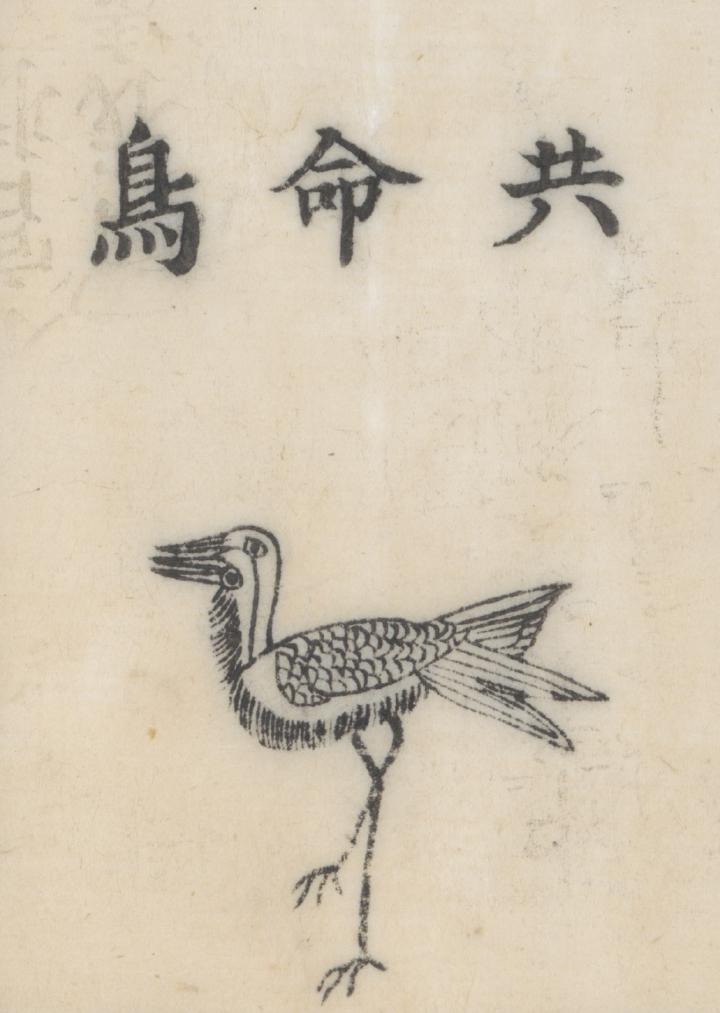 共命鳥